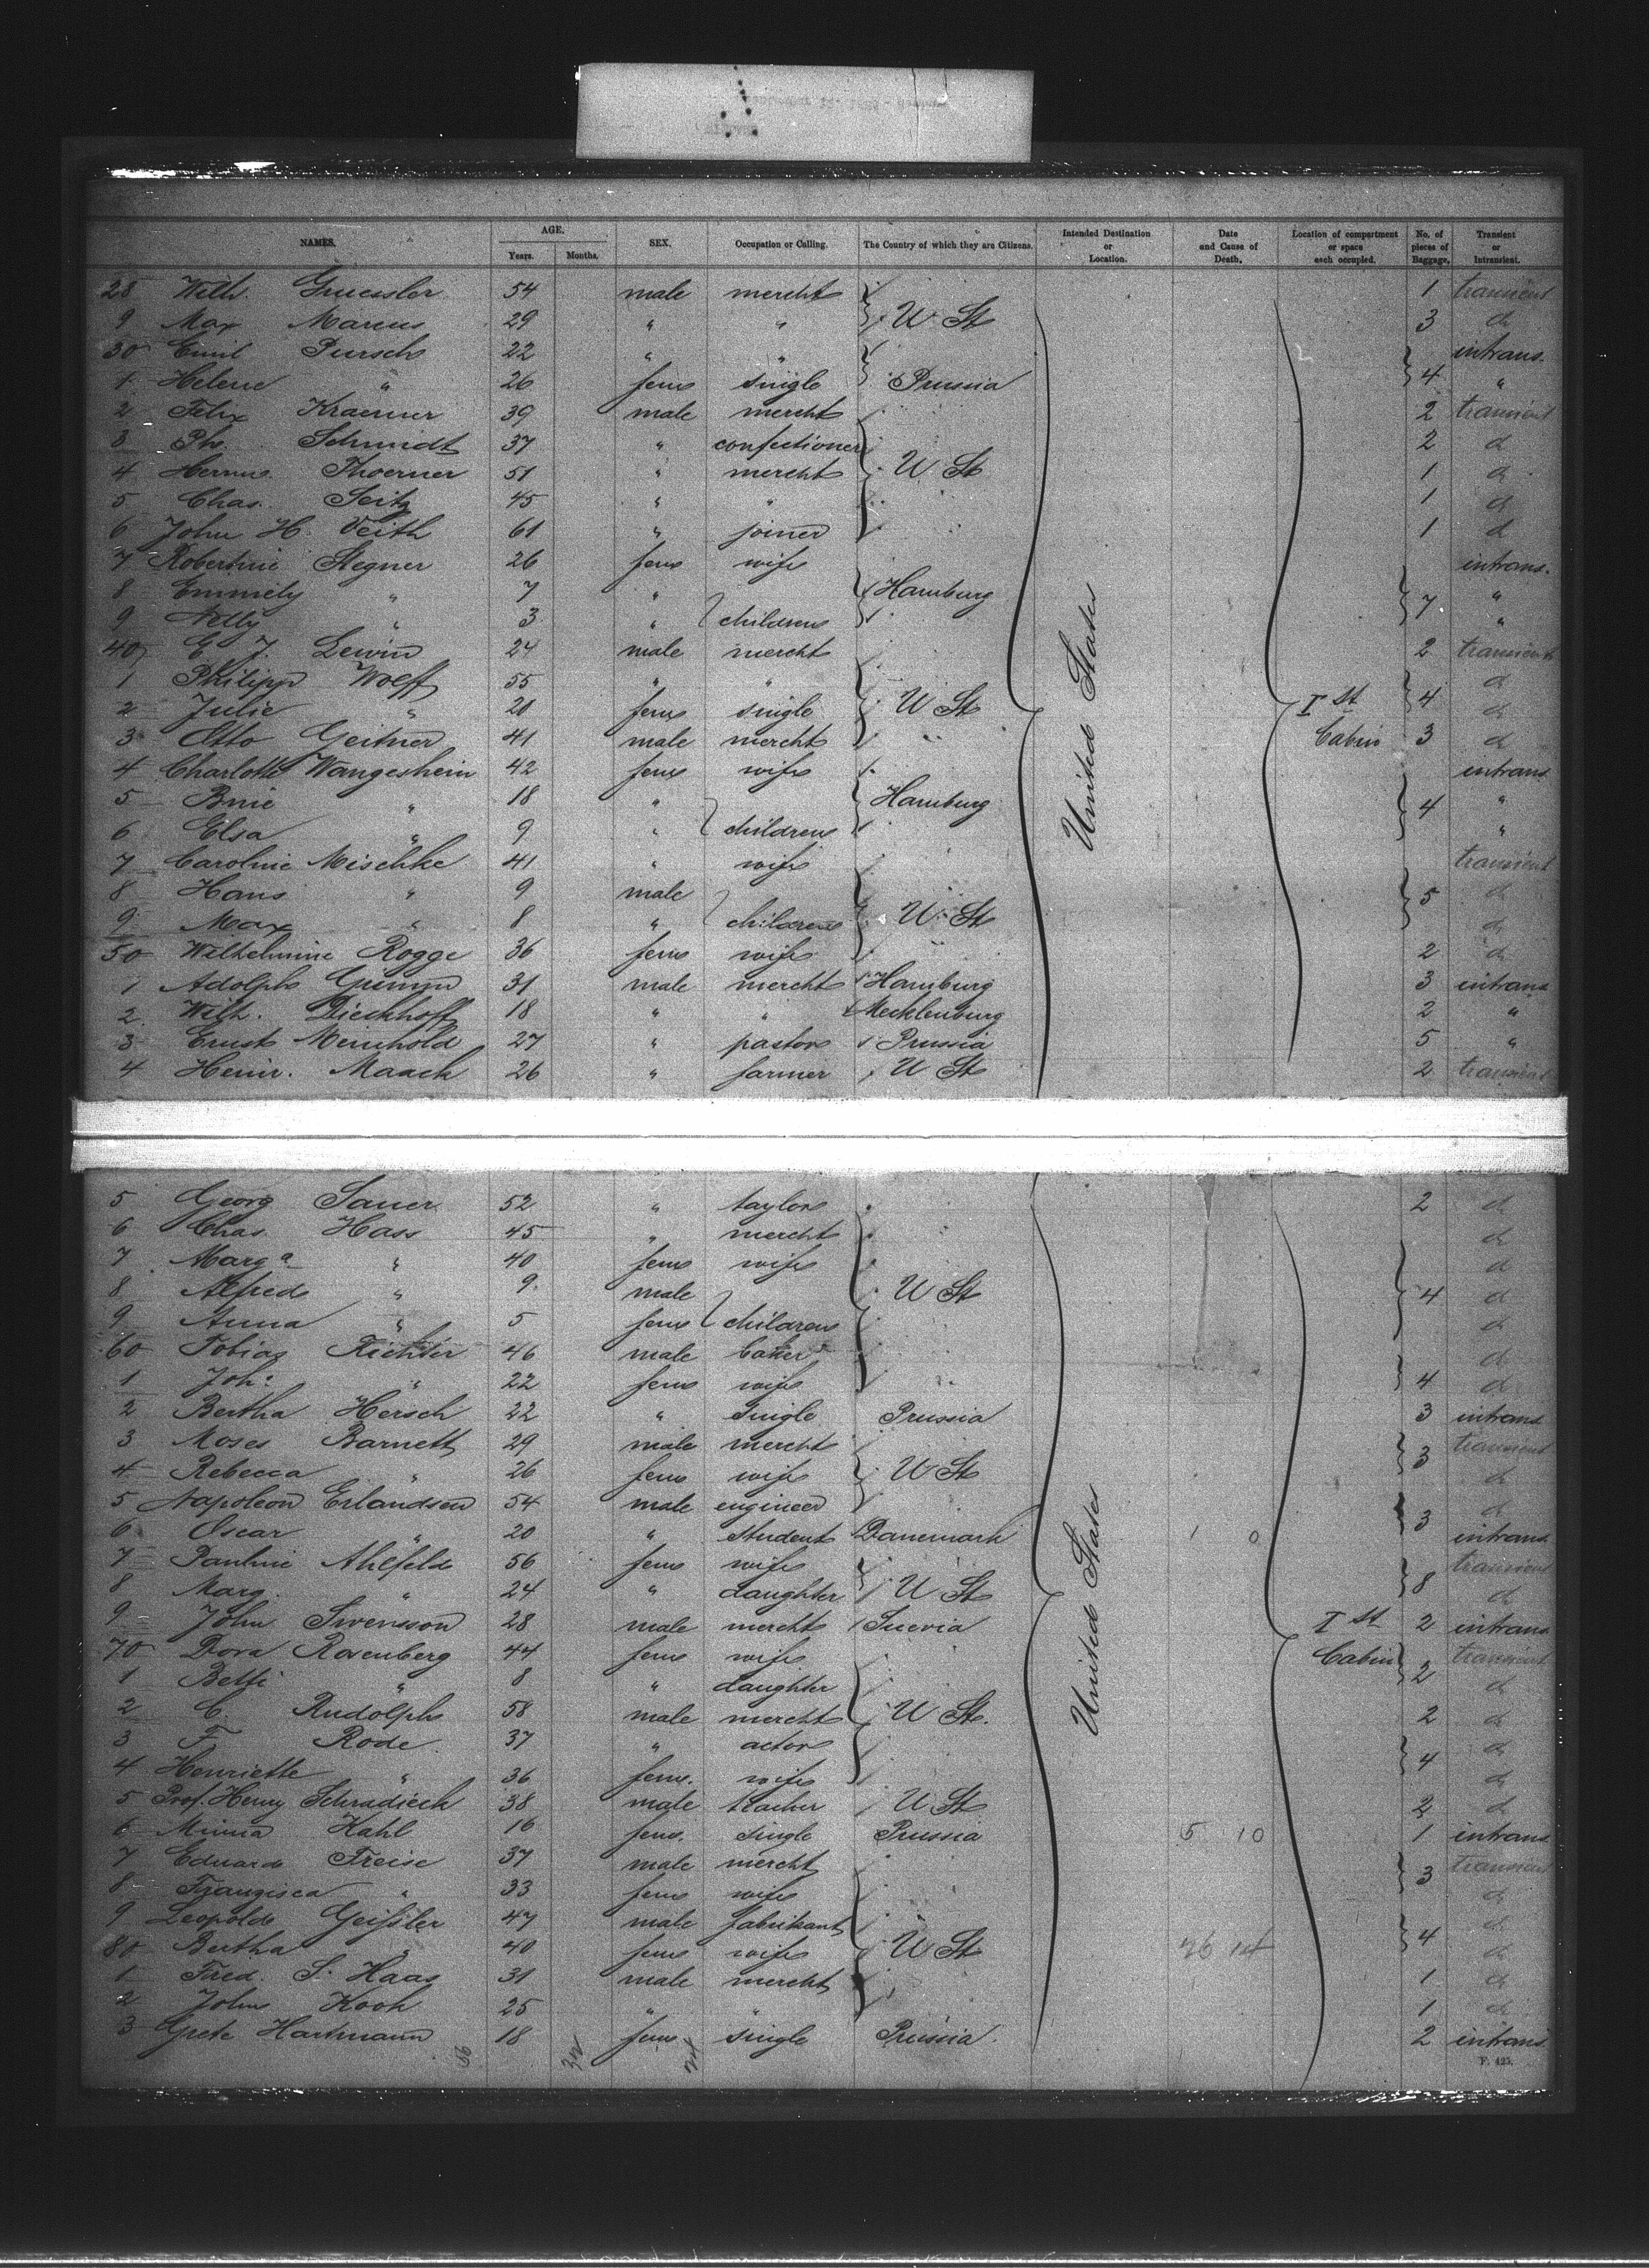 NAMES. AGE. Years. Months. SEX. Occupation or Calling. The Country of which they are Citizens. Intended Destination or Location. Date and Cause of Death. Location of compartment or space each occupied. No. of pieces of Baggage. Transient or Intransient.
28 Wilh. Gruessler 54 male mercht 1 transient
9 Max Marcus 29 " " U St 3 d
30 Emil Pursch 22 " " intrans.
1 Helene " 26 fem single Prussia 4 "
2 Felix Kraemer 39 male mercht 2 transient
3 Ph. Schmidt 37 " confectioner 2 d
4 Herm. Thoerner 51 " mercht U St 1 d
5 Chas. Seitz 45 " " 1 d
6 John H. Veith 61 " joiner 1 d
7 Robertine Stegner 26 fem wife intrans.
8 Emmely " 7 " Hamburg 7 "
9 Nelly " 3 " children "
40 E. J. Lewin 24 male mercht 2 transient
1 Philipp Wolff 55 " " d
2 Julie " 21 fem single U St United States Ist 4 d
3 Otto Geitner 41 male mercht " Cabin 3 d
4 Charlotte Wangeshein 42 fem wife intrans
5 " 18 " Hamburg 4 "
6 Elsa " 9 " children "
7 Caroline Mischke 41 " wife transient
8 Hans " 9 male 5 d
9 Max " 8 " children U St d
50 Wilhelmine Rogge 36 fem wife 2 d
1 Adolph 31 male mercht Hamburg 3 intrans
2 Wilh. Dieckhoff 18 " " Mecklenburg 2 "
3 Ernst Meinhold 27 " pastor Prussia 5 "
4 Heinr. Maack 26 " farmer U St 2 transient
5 Georg Sauer 52 " taylor 2 d
6 Chas. Hass 45 " mercht d
7 Marga " 40 fem wife d
8 Alfred " 9 male U St 4 d
9 Anna " 5 fem children d
60 Tobias Richter 46 male baker d
1 Joh. " 22 fem wife 4 d
2 Bertha Hersch 22 " single Prussia 3 intrans
3 Moses Barnett 29 male mercht transient
4 Rebecca " 26 fem wife U St 3 d
5 Napoleon Erlandsen 54 male engineer d
6 Oscar " 20 " student Danemark 1 0 3 intrans
7 Pauline Ahlfeld 56 fem wife transient
8 Marg. " 24 " daughter U St United States 8 d
9 John Swensson 28 male mercht Suevia Ist 2 intrans
70 Dora Rosenberg 44 fem wife Cabin transient
1 Betti " 8 " daughter 2 d
2 C. Rudolph 58 male mercht U St. 2 d
3 F. Rode 37 " actor d
4 Henriette " 36 fem. wife 4 d
5 Prof. Henry Schradieck 38 male teacher U St 2 d
6 Minna Kahl 16 fem. single Prussia 5 10 1 intrans
7 Eduard Freise 37 male mercht transient
8 Franzisca " 33 fem wife 3 d
9 Leopold Geißler 47 male fabrikant d
80 Bertha " 40 fem wife U St 76 14 4 d
1 Fred. S. Haas 31 male mercht 1 d
2 John Koch 25 " " 1 d
3 Grete Hartmann 18 fem single Prussia 2 intrans
F. 425.